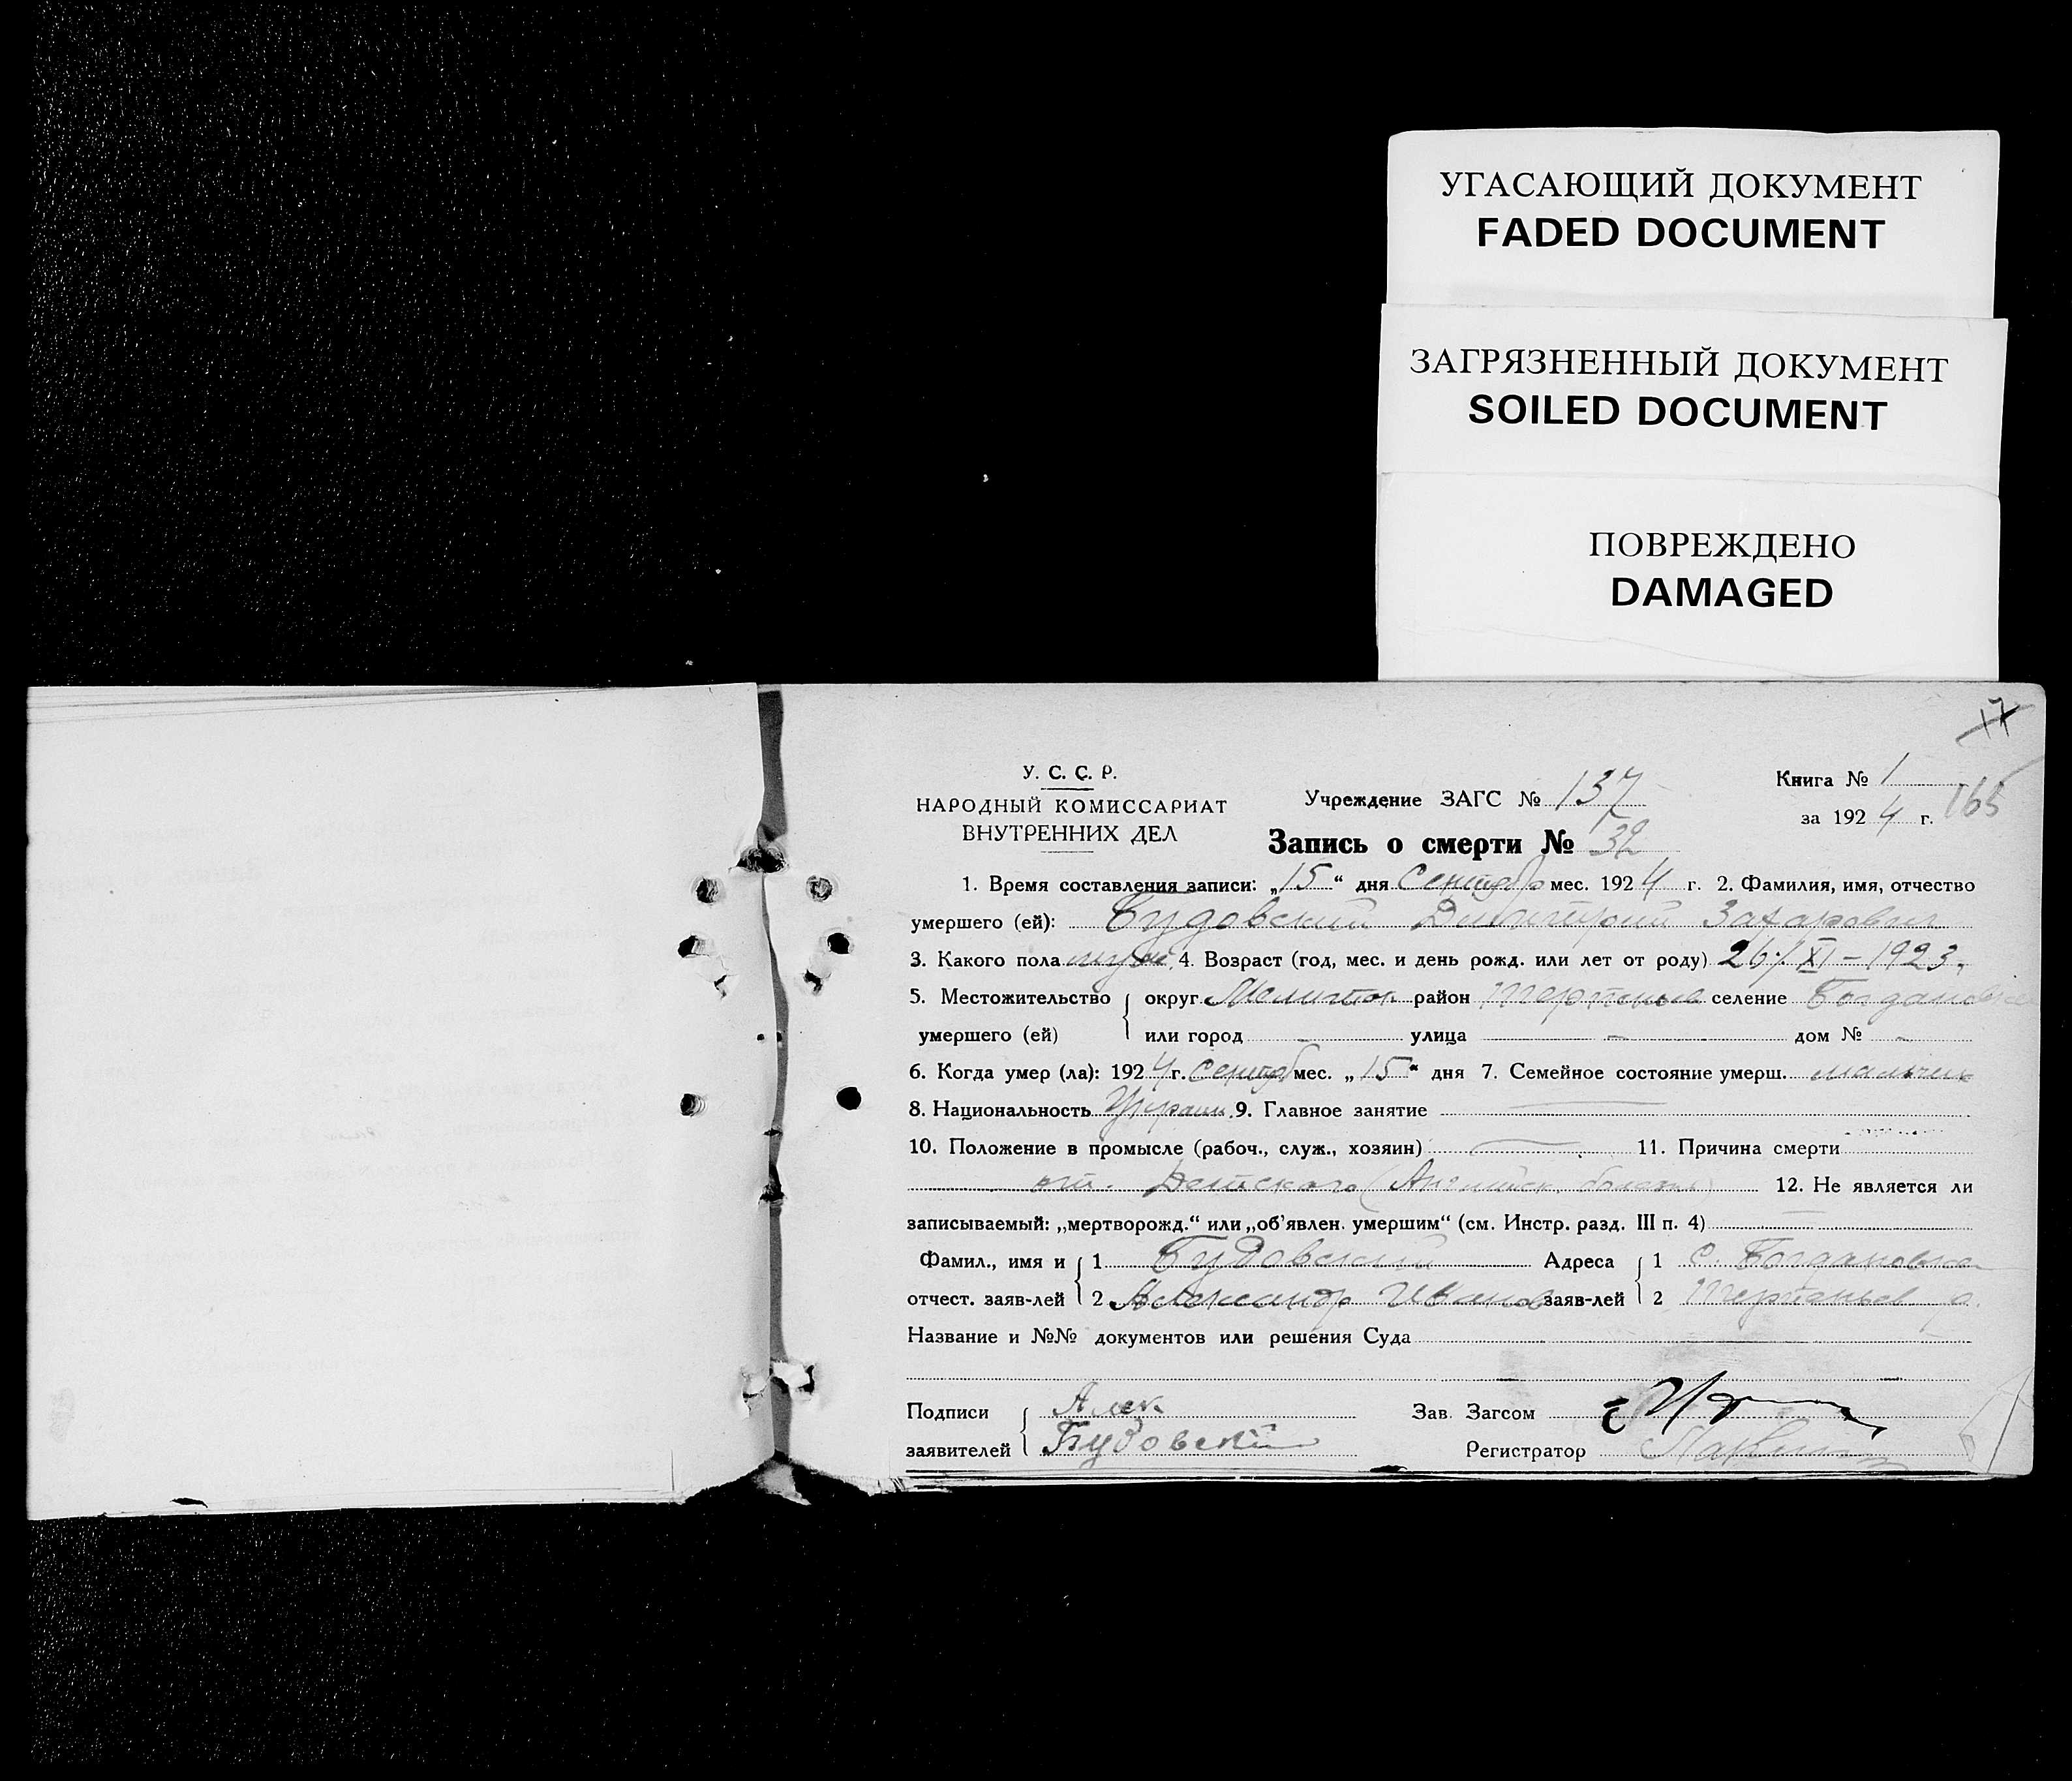 УГАСАЮЩИЙ ДОКУМЕНТ
FADED DOCUMENT
ЗАГРЯЗНЕННЫЙ ДОКУМЕНТ
SOILED DOCUMENT
ПОВРЕЖДЕНО
DAMAGED
17
У. С. С. Р.
НАРОДНЫЙ КОМИССАРИАТ
ВНУТРЕННИХ ДЕЛ
Учреждение ЗАГС № 137
Запись о смерти № 32
Книга № 1
за 1924 г. 165
1. Время составления записи: „15“ дня Сентябр мес. 1924 г. 2. Фамилия, имя, отчество
умершего (ей): Будовский Димитрий Захарович
3. Какого пола муж. 4. Возраст (год, мес. и день рожд. или лет от роду) 26/XI–1923.
5. Местожительство округ Мелитоп район Терпеньев селение Богдановка
умершего (ей) или город улица – дом № –
6. Когда умер (ла): 1924 г. Сентяб мес. „15“ дня 7. Семейное состояние умерш. мальчик
8. Национальность Украин. 9. Главное занятие
10. Положение в промысле (рабоч., служ., хозяин) 11. Причина смерти
от. Детского (Английск. болезнь) 12. Не является ли
записываемый: „мертворожд.“ или „об'явлен. умершим“ (см. Инстр. разд. III п. 4)
Фамил., имя и 1 Будовский Адреса 1 с. Богдановка
отчест. заяв-лей 2 Александр Иванов заяв-лей 2 Терпеньев р.
Название и №№ документов или решения Суда
Подписи Алек Зав. Загсом
заявителей Будовский Регистратор